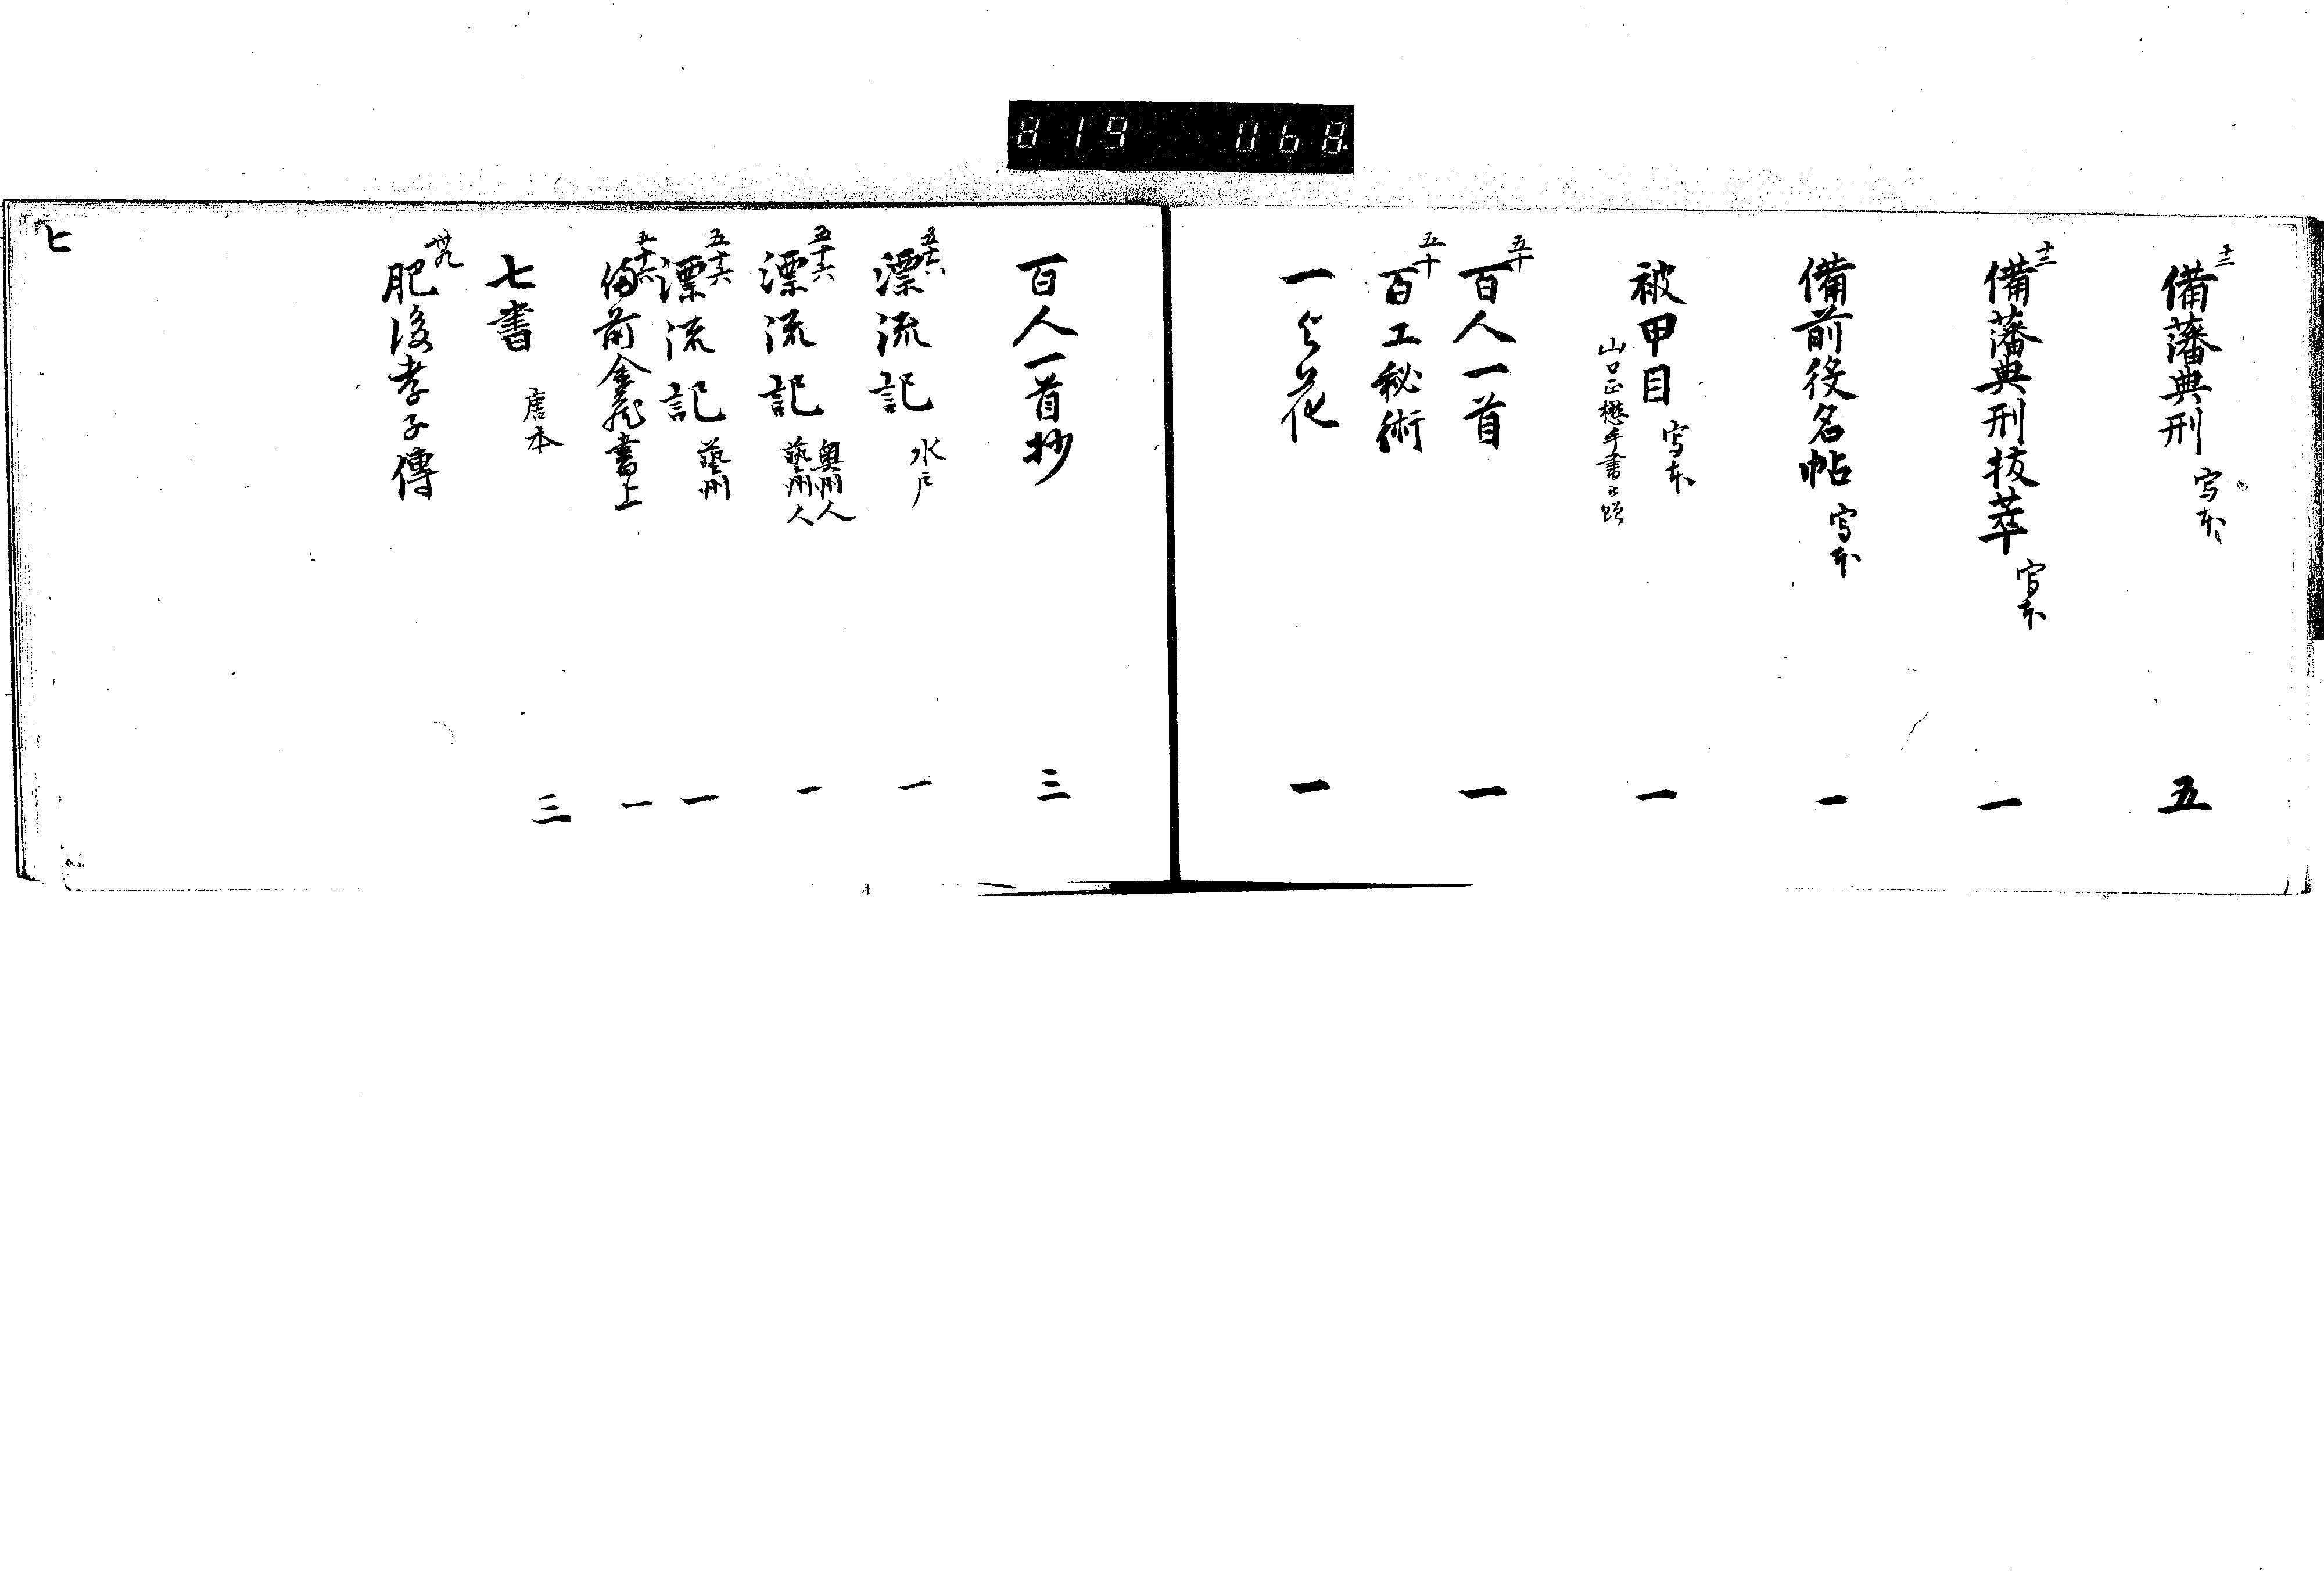 819 068
十三
備藩典刑 写本 五
十三
備藩典刑抜萃 写本 一
備前役名帖 写本 一
被甲目 写本 一
山口正懋手書
五十
百人一首 一
五十
百工秘術
一 花 一
百人一首抄 三
五十六
漂流記 水戸 一
五十六
漂流記 奥州人 藝州人 一
五十六
漂流記 藝州 一
五十六
備前 書上 一
七書 唐本 三
丗九
肥後孝子傳
ヒ